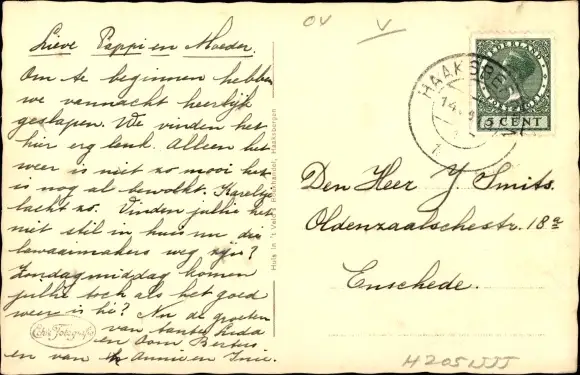 Lieve Pappi en Moeder.
Om te beginnen hebben
we vannacht heerlijk
geslapen. We vinden het
hier erg leuk. Alleen het
weer is niet zo mooi het
is nog al bewolkt. Kareltje
lacht zo. Vinden jullie het
niet stil in huis nu die
lawaaimakers weg zijn?
Zondagmiddag komen
jullie toch als het goed
weer is hè? Nu de groeten
van tante Leida
en Oom Bertus
en van Annie en Inie.
Echte Fotografie
Huis in 't Veld's Boekhandel, Haaksbergen
OV
V
NEDERLAND
5 CENT
HAAKSBERGEN
14
1
Den Heer J. Smits.
Oldenzaalschestr. 18a
Enschede.
H205NJJ